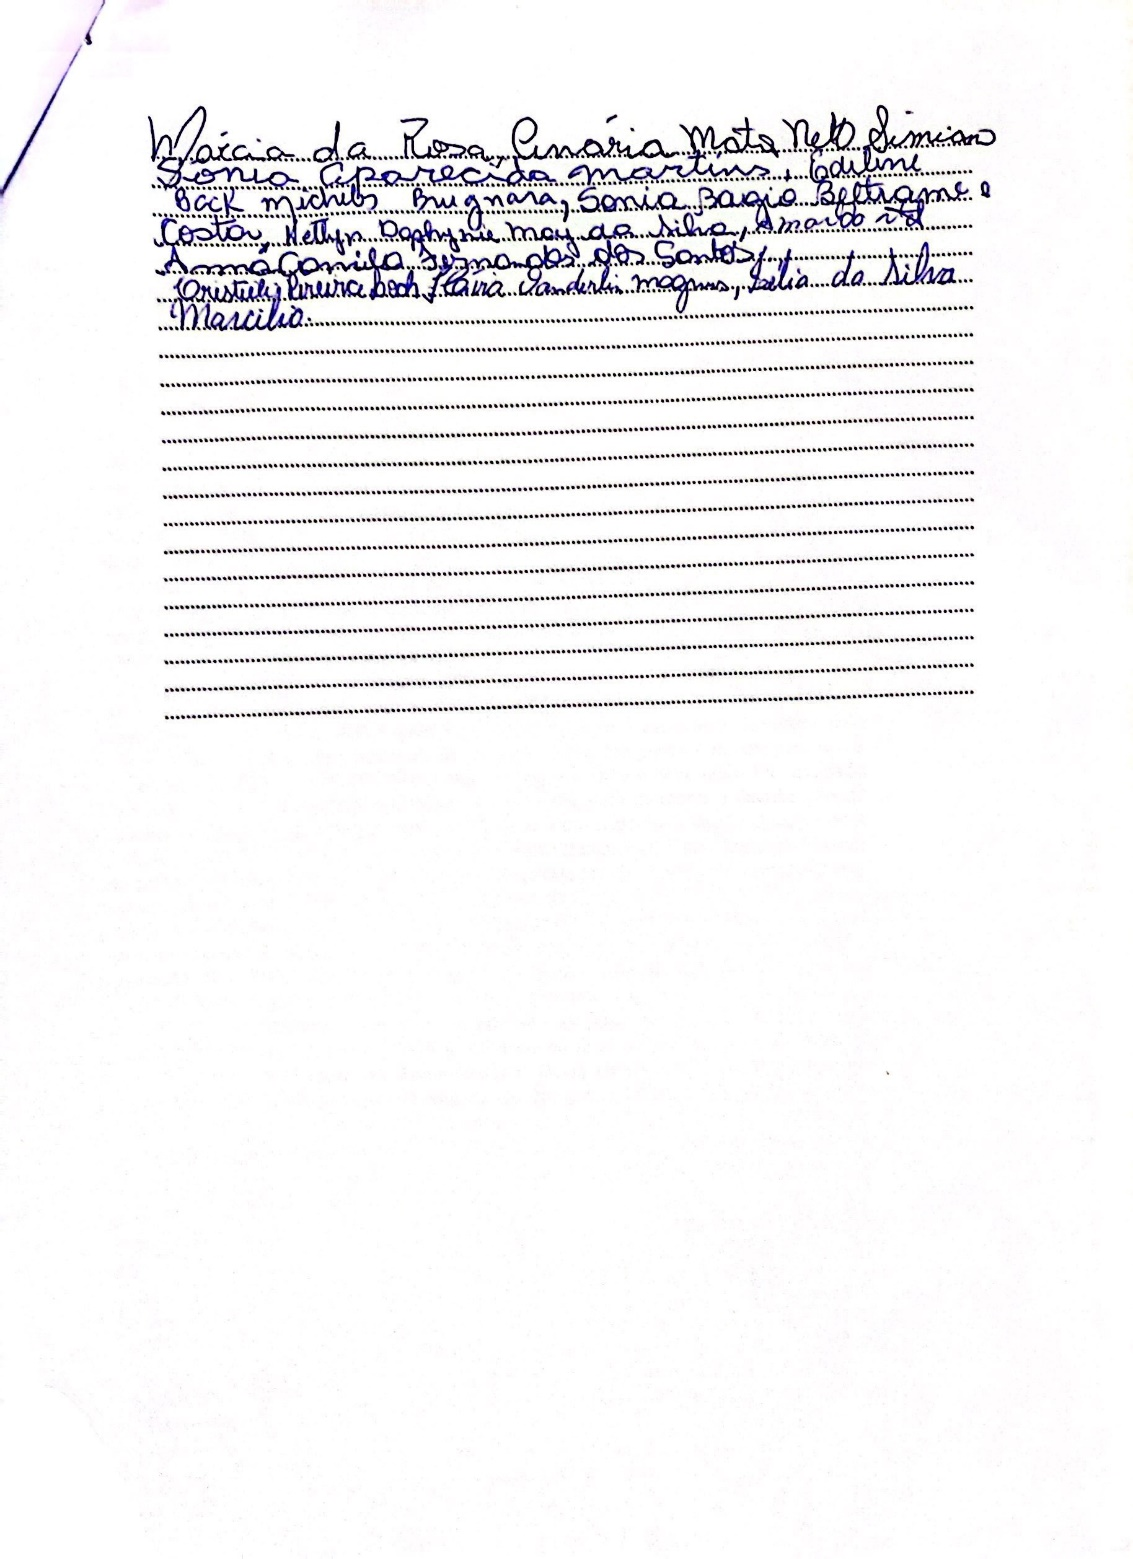 Márcia da Rosa, Mota Neto Simiano
Sonia Aparecida Martins, Edilene
Back Michels Brugnara, Sonia Bagio Beltrame
Costa, Kettlyn Daphynie May da Silva,
Anna Camila Fernandes dos Santos,
Pereira Flávia Vanderlin Magnus, Zélia da Silva
Marcilio.